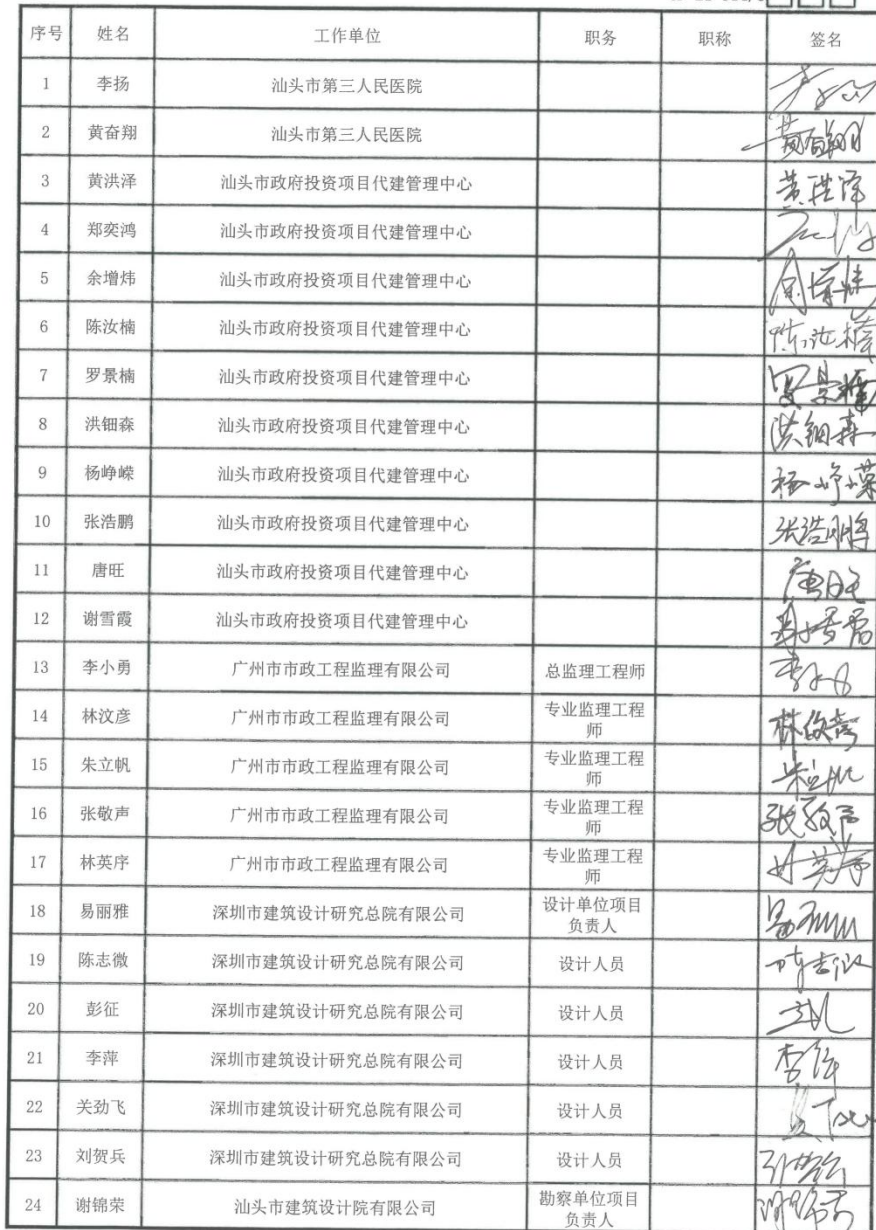 序号 姓名 工作单位 职务 职称 签名
1 李扬 汕头市第三人民医院
2 黄奋翔 汕头市第三人民医院 黄奋翔
3 黄洪泽 汕头市政府投资项目代建管理中心 黄洪泽
4 郑奕鸿 汕头市政府投资项目代建管理中心
5 余增炜 汕头市政府投资项目代建管理中心 余增炜
6 陈汝楠 汕头市政府投资项目代建管理中心 陈汝楠
7 罗景楠 汕头市政府投资项目代建管理中心 罗景楠
8 洪钿森 汕头市政府投资项目代建管理中心 洪钿森
9 杨峥嵘 汕头市政府投资项目代建管理中心 杨峥嵘
10 张浩鹏 汕头市政府投资项目代建管理中心 张浩鹏
11 唐旺 汕头市政府投资项目代建管理中心 唐旺
12 谢雪霞 汕头市政府投资项目代建管理中心
13 李小勇 广州市市政工程监理有限公司 总监理工程师
14 林汶彦 广州市市政工程监理有限公司 专业监理工程
师
15 朱立帆 广州市市政工程监理有限公司 专业监理工程
师
16 张敬声 广州市市政工程监理有限公司 专业监理工程
师 张敬声
17 林英序 广州市市政工程监理有限公司 专业监理工程
师 林英序
18 易丽雅 深圳市建筑设计研究总院有限公司 设计单位项目
负责人
19 陈志微 深圳市建筑设计研究总院有限公司 设计人员 陈志微
20 彭征 深圳市建筑设计研究总院有限公司 设计人员
21 李萍 深圳市建筑设计研究总院有限公司 设计人员 李萍
22 关劲飞 深圳市建筑设计研究总院有限公司 设计人员
23 刘贺兵 深圳市建筑设计研究总院有限公司 设计人员
24 谢锦荣 汕头市建筑设计院有限公司 勘察单位项目
负责人